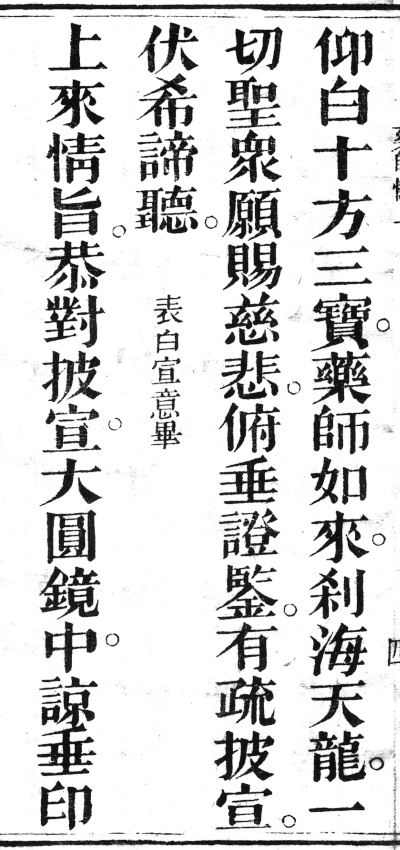 仰白十方三寶。藥師如來。刹海天龍。一
切聖衆願賜慈悲。俯垂證鑒。有疏披宣。
伏希諦聽。 表白宣意畢
上來情旨。恭對披宣。大圓鏡中。諒垂印